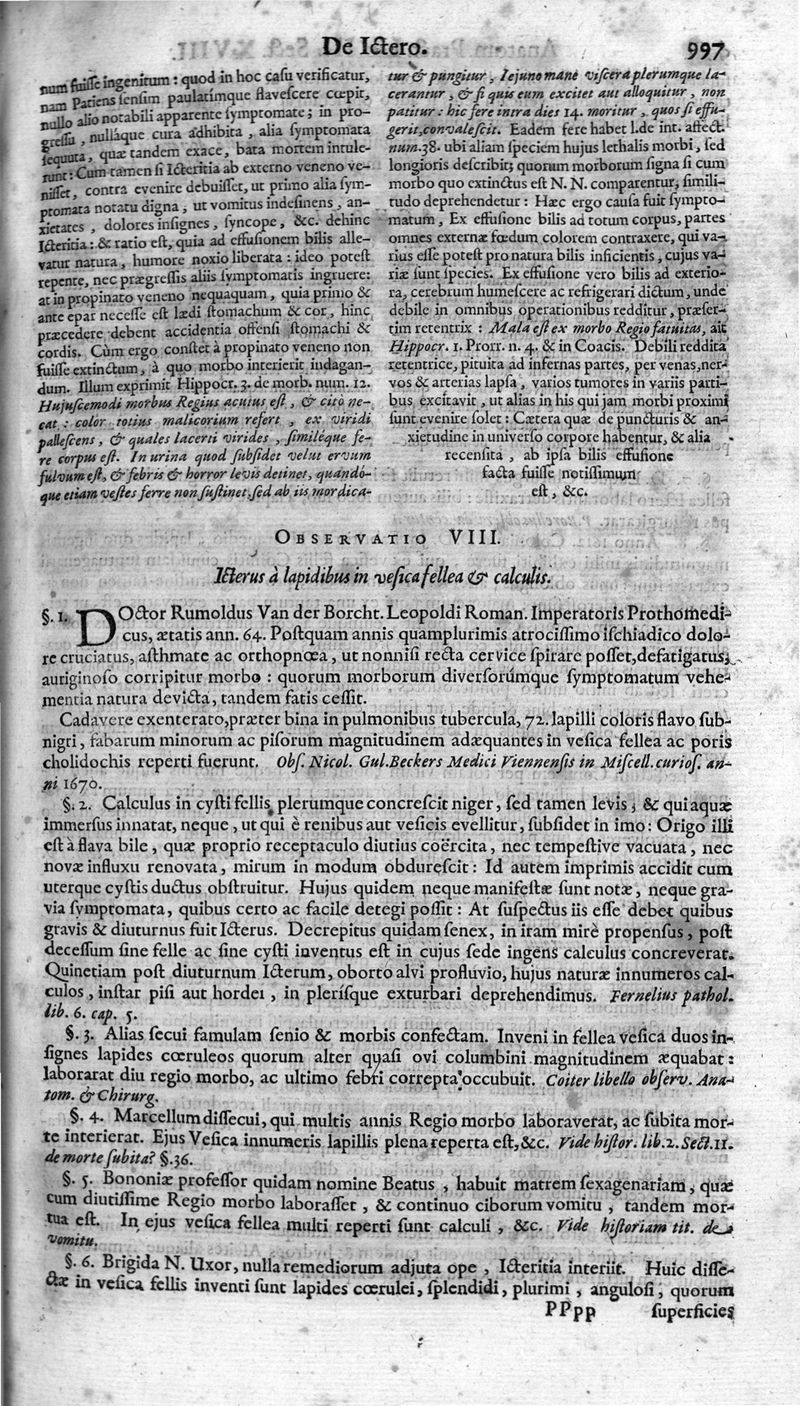 De Ictero. 997
num fuiſſe ingenitum: quod in hoc caſu verificatur,
nam Patiens ſenſim paulatímque flaveſcere cœpit,
nullo alio notabili apparente ſymptomate; in pro-
greſſu, nulláque cura adhibita, alia ſymptomata
ſequuta, quæ tandem exace, bata mortem intule-
runt: Cum tamen ſi Icteritia ab externo veneno ve-
niſſet, contra evenire debuiſſet, ut primo alia ſym-
ptomata notatu digna, ut vomitus indeſinens, an-
xietates, dolores inſignes, ſyncope, &c. dehinc
Icteritia: & ratio eſt, quia ad effuſionem bilis alle-
vatur natura, humore noxio liberata: ideo poteſt
repente, nec prægreſſis aliis ſymptomatis ingruere:
at in propinato veneno nequaquam, quia primo &
ante epar neceſſe eſt lædi ſtomachum & cor, hinc
præcedere debent accidentia offenſi ſtomachi &
cordis. Cùm ergo conſtet à propinato veneno non
fuiſſe extinctum, à quo morbo interierit indagan-
dum. Illum exprimit Hippocr. 3. de morb. num. 12.
Hujuſcemodi morbus Regius acutus eſt, & citò ne-
cat: color totius malicorium refert, ex viridi
palleſcens, & quales lacerti virides, ſimileque fe-
re corpus eſt. In urina quod ſubſidet velut ervum
fulvum eſt, & febris & horror levis detinet, quando-
que etiam veſtes ferre non ſuſtinet, ſed ab iis mordica-
tur & pungitur, Iejuno manè viſcera plerumque la-
cerantur, & ſi quis eum excitet aut alloquitur, non
patitur: hic fere intra dies 14. moritur, quos ſi effu-
gerit, convaleſcit. Eadem fere habet l. de int. affect.
num. 38. ubi aliam ſpeciem hujus lethalis morbi, ſed
longioris deſcribit; quorum morborum ſigna ſi cum
morbo quo extinctus eſt N. N. comparentur, ſimili-
tudo deprehendetur: Hæc ergo cauſa fuit ſympto-
matum, Ex effuſione bilis ad totum corpus, partes
omnes externæ fœdum colorem contraxere, qui va-
rius eſſe poteſt pro natura bilis inficientis, cujus va-
riæ ſunt ſpecies. Ex effuſione vero bilis ad exterio-
ra, cerebrum humeſcere ac refrigerari dictum, unde
debile in omnibus operationibus redditur, præſer-
tim retentrix: Mala eſt ex morbo Regio fatuitas, ait
Hippocr. 1. Prorr. n. 4. & in Coacis. Debili reddita
retentrice, pituita ad infernas partes, per venas, ner-
vos & arterias lapſa, varios tumores in variis parti-
bus excitavit, ut alias in his qui jam morbi proximi
ſunt evenire ſolet: Cætera quæ de puncturis & an-
xietudine in univerſo corpore habentur, & alia
recenſita, ab ipſa bilis effuſione
facta fuiſſe notiſſimum
eſt, &c.
Observatio VIII.
Icterus à lapidibus in veſica fellea & calculis.
§. 1. DOctor Rumoldus Van der Borcht. Leopoldi Roman. Imperatoris Prothomedi-
cus, ætatis ann. 64. Poſtquam annis quamplurimis atrociſſimo iſchiadico dolo-
re cruciatus, aſthmate ac orthopnœa, ut nonniſi recta cervice ſpirare poſſet, defatigatus;
auriginoſo corripitur morbo: quorum morborum diverſorúmque ſymptomatum vehe-
mentia natura devicta, tandem fatis ceſſit.
Cadavere exenterato, præter bina in pulmonibus tubercula, 72. lapilli coloris flavo ſub-
nigri, fabarum minorum ac piſorum magnitudinem adæquantes in veſica fellea ac poris
cholidochis reperti fuerunt. Obſ. Nicol. Gul. Beckers Medici Viennenſis in Miſcell. curioſ. an-
ni 1670.
§. 2. Calculus in cyſti fellis plerumque concreſcit niger, ſed tamen levis, & qui aquæ
immerſus innatat, neque, ut qui è renibus aut veſicis evellitur, ſubſidet in imo: Origo illi
eſt à flava bile, quæ proprio receptaculo diutius coërcita, nec tempeſtive vacuata, nec
novæ influxu renovata, mirum in modum obdureſcit: Id autem imprimis accidit cum
uterque cyſtis ductus obſtruitur. Hujus quidem neque manifeſtæ ſunt notæ, neque gra-
via ſymptomata, quibus certo ac facile detegi poſſit: At ſuſpectus iis eſſe debet quibus
gravis & diuturnus fuit Icterus. Decrepitus quidam ſenex, in iram mirè propenſus, poſt
deceſſum ſine felle ac ſine cyſti inventus eſt in cujus ſede ingens calculus concreverat.
Quinetiam poſt diuturnum Icterum, oborto alvi profluvio, hujus naturæ innumeros cal-
culos, inſtar piſi aut hordei, in pleriſque exturbari deprehendimus. Fernelius pathol.
lib. 6. cap. 5.
§. 3. Alias ſecui famulam ſenio & morbis confectam. Inveni in fellea veſica duos in-
ſignes lapides cœruleos quorum alter quaſi ovi columbini magnitudinem æquabat:
laborarat diu regio morbo, ac ultimo febri correpta occubuit. Coiter libello obſerv. Ana-
tom. & Chirurg.
§. 4. Marcellum diſſecui, qui multis annis Regio morbo laboraverat, ac ſubita mor-
te interierat. Ejus Veſica innumeris lapillis plena reperta eſt, &c. Vide hiſtor. lib. 2. Sect. 11.
de morte ſubita? §. 36.
§. 5. Bononiæ profeſſor quidam nomine Beatus, habuit matrem ſexagenariam, quæ
cum diutiſſime Regio morbo laboraſſet, & continuo ciborum vomitu, tandem mor-
tua eſt. In ejus veſica fellea multi reperti ſunt calculi, &c. Vide hiſtoriam tit. de
vomitu.
§. 6. Brigida N. Uxor, nulla remediorum adjuta ope, Icteritia interiit. Huic diſſe-
ctæ in veſica fellis inventi ſunt lapides cœrulei, ſplendidi, plurimi, anguloſi, quorum
PPpp ſuperficies